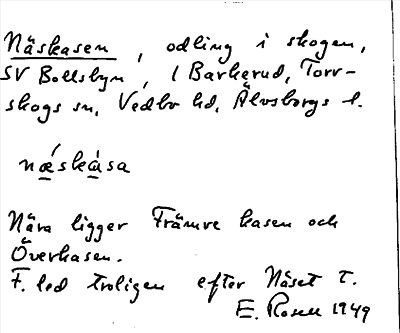 Näskasen, odling i skogen,
SV Bollsbyn, i Barkerud, Torr-
skogs sn, Vedbo hd, Älvsborgs l.
nǽskàsa
Nära ligger Främre kasen och
Överkasen.
F. led troligen efter Näset T.
E. Rosell 1949